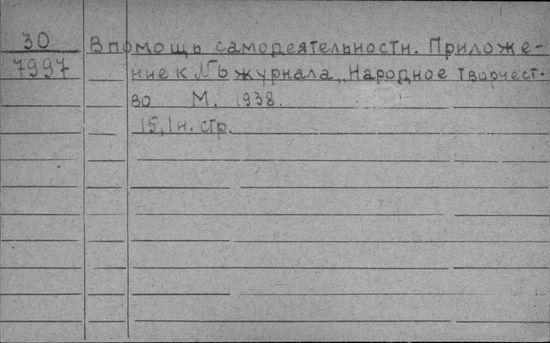 30
7997
В помощь самодеятельности. Приложе-
ние к № журнала „Народное творчест-
во М. 1938.
15, 1 н. стр.